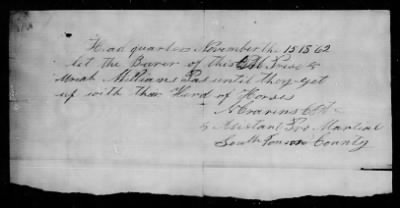 Head quarters November th. 15 1862
let the Barer of this Price &
Williams Pas until they get
up with thar Herd of Horses
Cravins
Asistant Pro Martial
South County